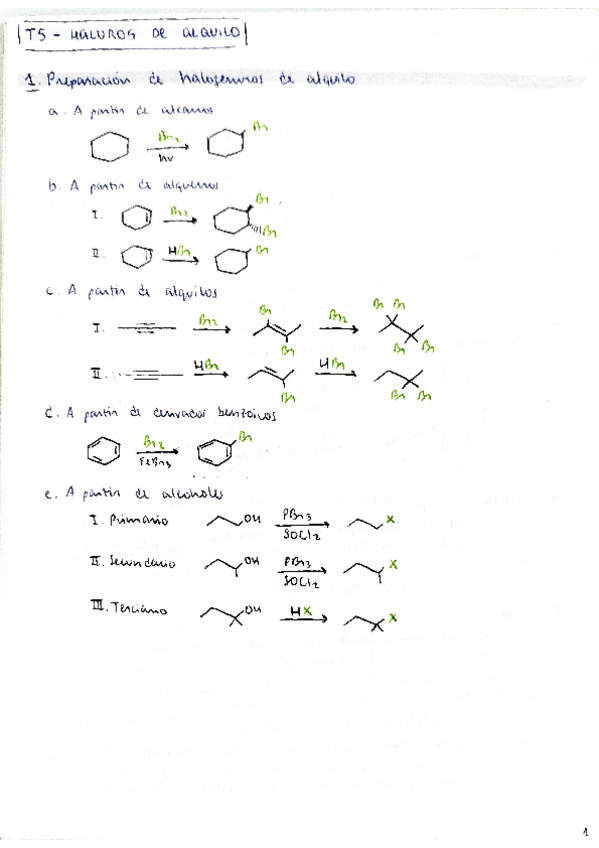 T5 - HALUROS DE ALQUILO
1. Preparación de halogenuros de alquilo
a. A partir de alcanos
Br2
hv
Br
b. A partir de alquenos
I. Br2 Br Br
II. HBr Br
c. A partir de alquilos
I. Br2 Br Br Br2 Br Br Br Br
II. HBr Br HBr Br Br
d. A partir de derivados benzoicos
Br2
FeBr3
Br
e. A partir de alcoholes
I. Primario OH PBr3 X
SOCl2
II. Secundario OH PBr3 X
SOCl2
III. Terciario OH HX X
1